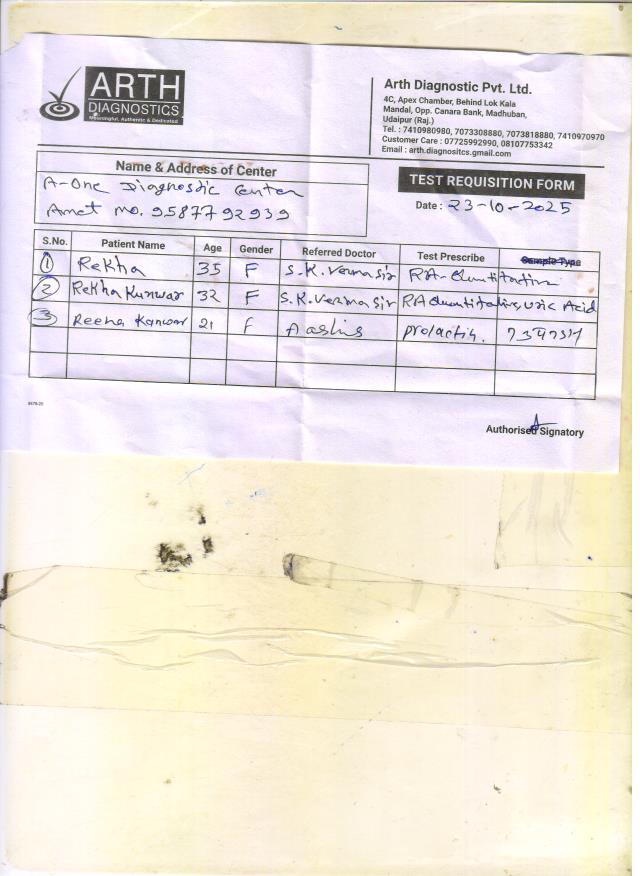 ARTH
DIAGNOSTICS
Meaningful, Authentic & Dedicated
Arth Diagnostic Pvt. Ltd.
4C, Apex Chamber, Behind Lok Kala
Mandal, Opp. Canara Bank, Madhuban,
Udaipur (Raj.)
Tel. : 7410980980, 7073308880, 7073818880, 7410970970
Customer Care : 07725992990, 08107753342
Email : arth.diagnositcs.gmail.com
Name & Address of Center
A-One Diagnostic Center
Amet mo. 9587792939
TEST REQUISITION FORM
Date : 23-10-2025
S.No. Patient Name Age Gender Referred Doctor Test Prescribe Sample Type
1 Rekha 35 F S.K. Verma Sir RA-Quantitative
2 Rekha Kunwar 32 F S.K. Verma Sir RA Quantitative, Uric Acid
3 Reena Kanwar 21 F Aashis prolactin.
Authorised Signatory